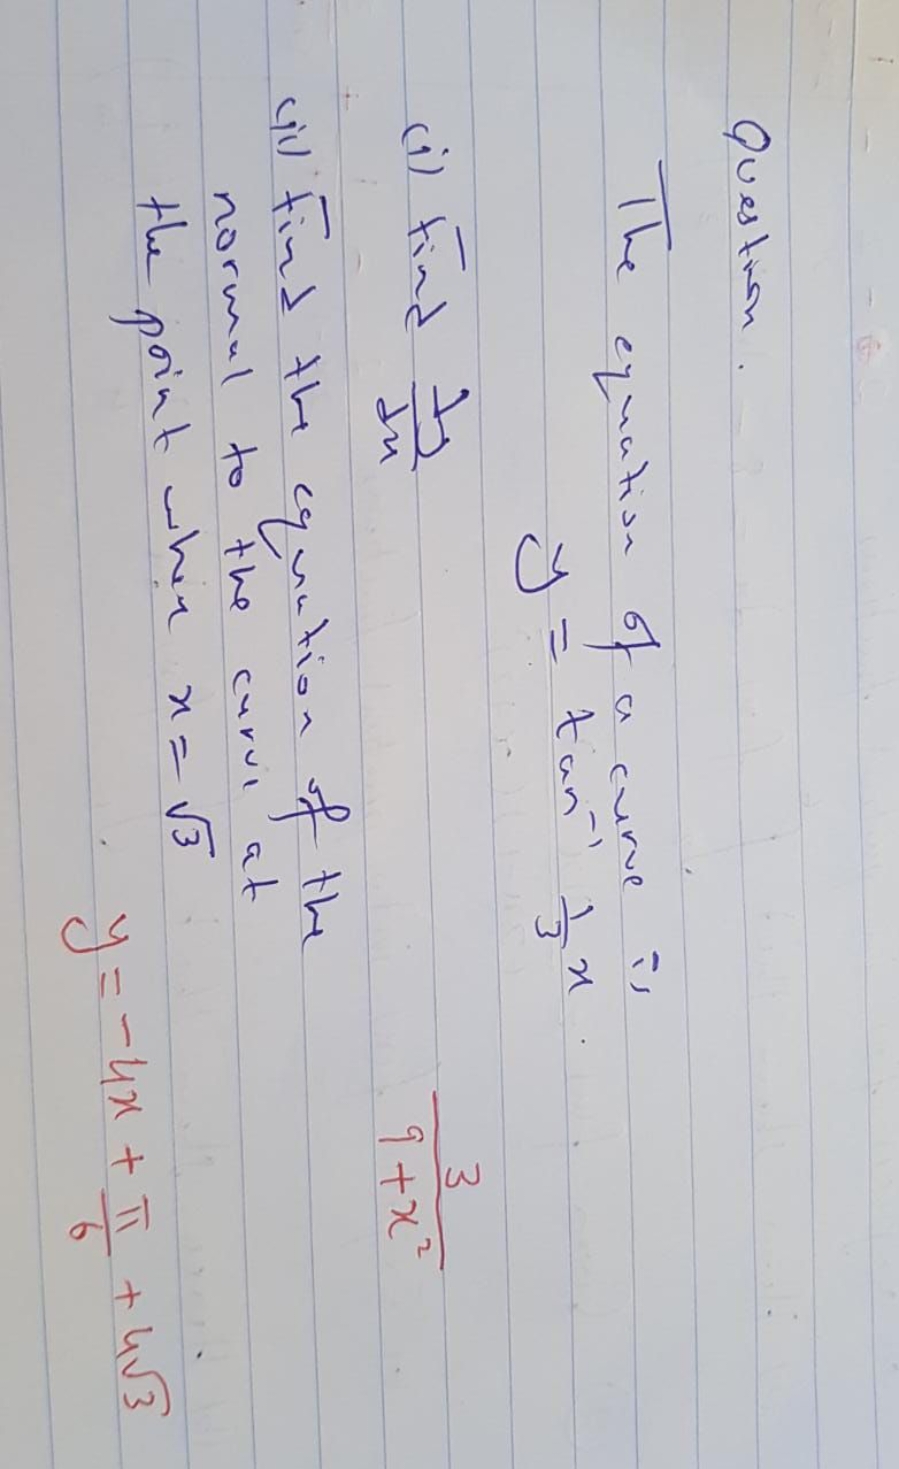 Question.
The equation of a curve is
y = tan⁻¹ 1/3 x.
(i) Find dy/dx
3/(9+x²)
(ii) Find the equation of the
normal to the curve at
the point when x = √3
y = -4x + π/6 + 4√3